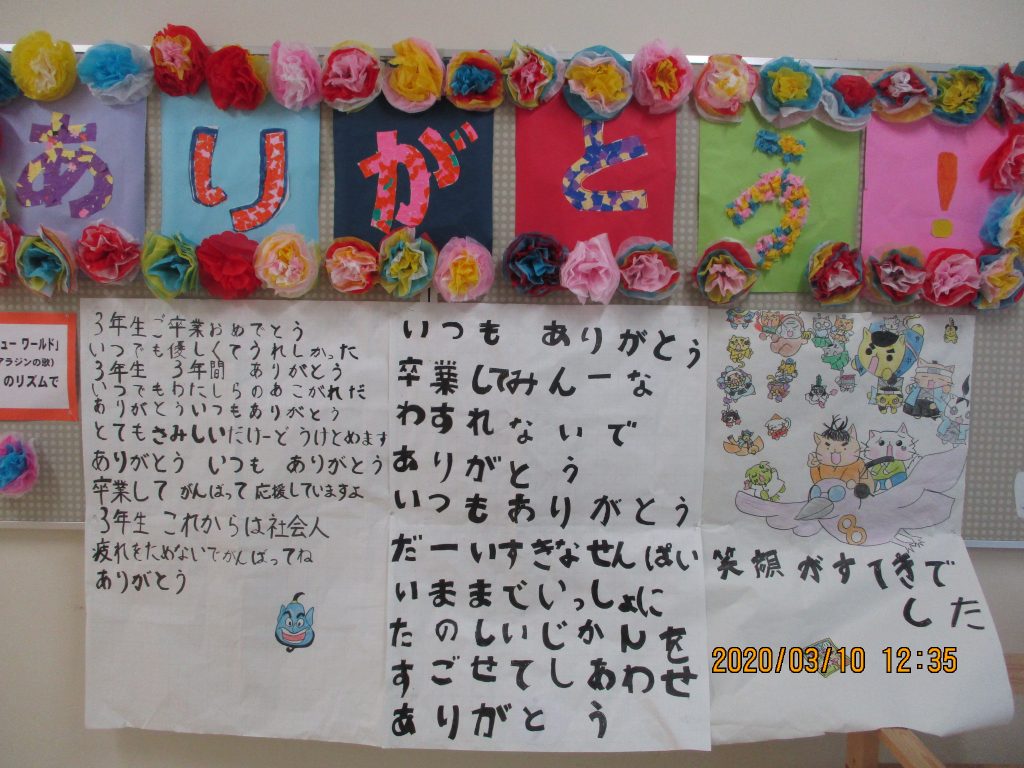 ありがとう!
ュー ワールド」
アラジンの歌)
のリズムで
3年生ご卒業おめでとう
いつでも優しくてうれしかった
3年生 3年間 ありがとう
いつでもわたしらのあこがれだ
ありがとういつもありがとう
とてもさみしいだけーど うけとめます
ありがとう いつも ありがとう
卒業して がんばって 応援していますよ
3年生 これからは社会人
疲れをためないでがんばってね
ありがとう
いつも ありがとう
卒業してみんーな
わすれないで
ありがとう
いつもありがとう
だーいすきなせんぱい
いままでいっしょに
たのしいじかんを
すごせてしあわせ
ありがとう
8
笑顔がすてきで
した
2020/03/10 12:35